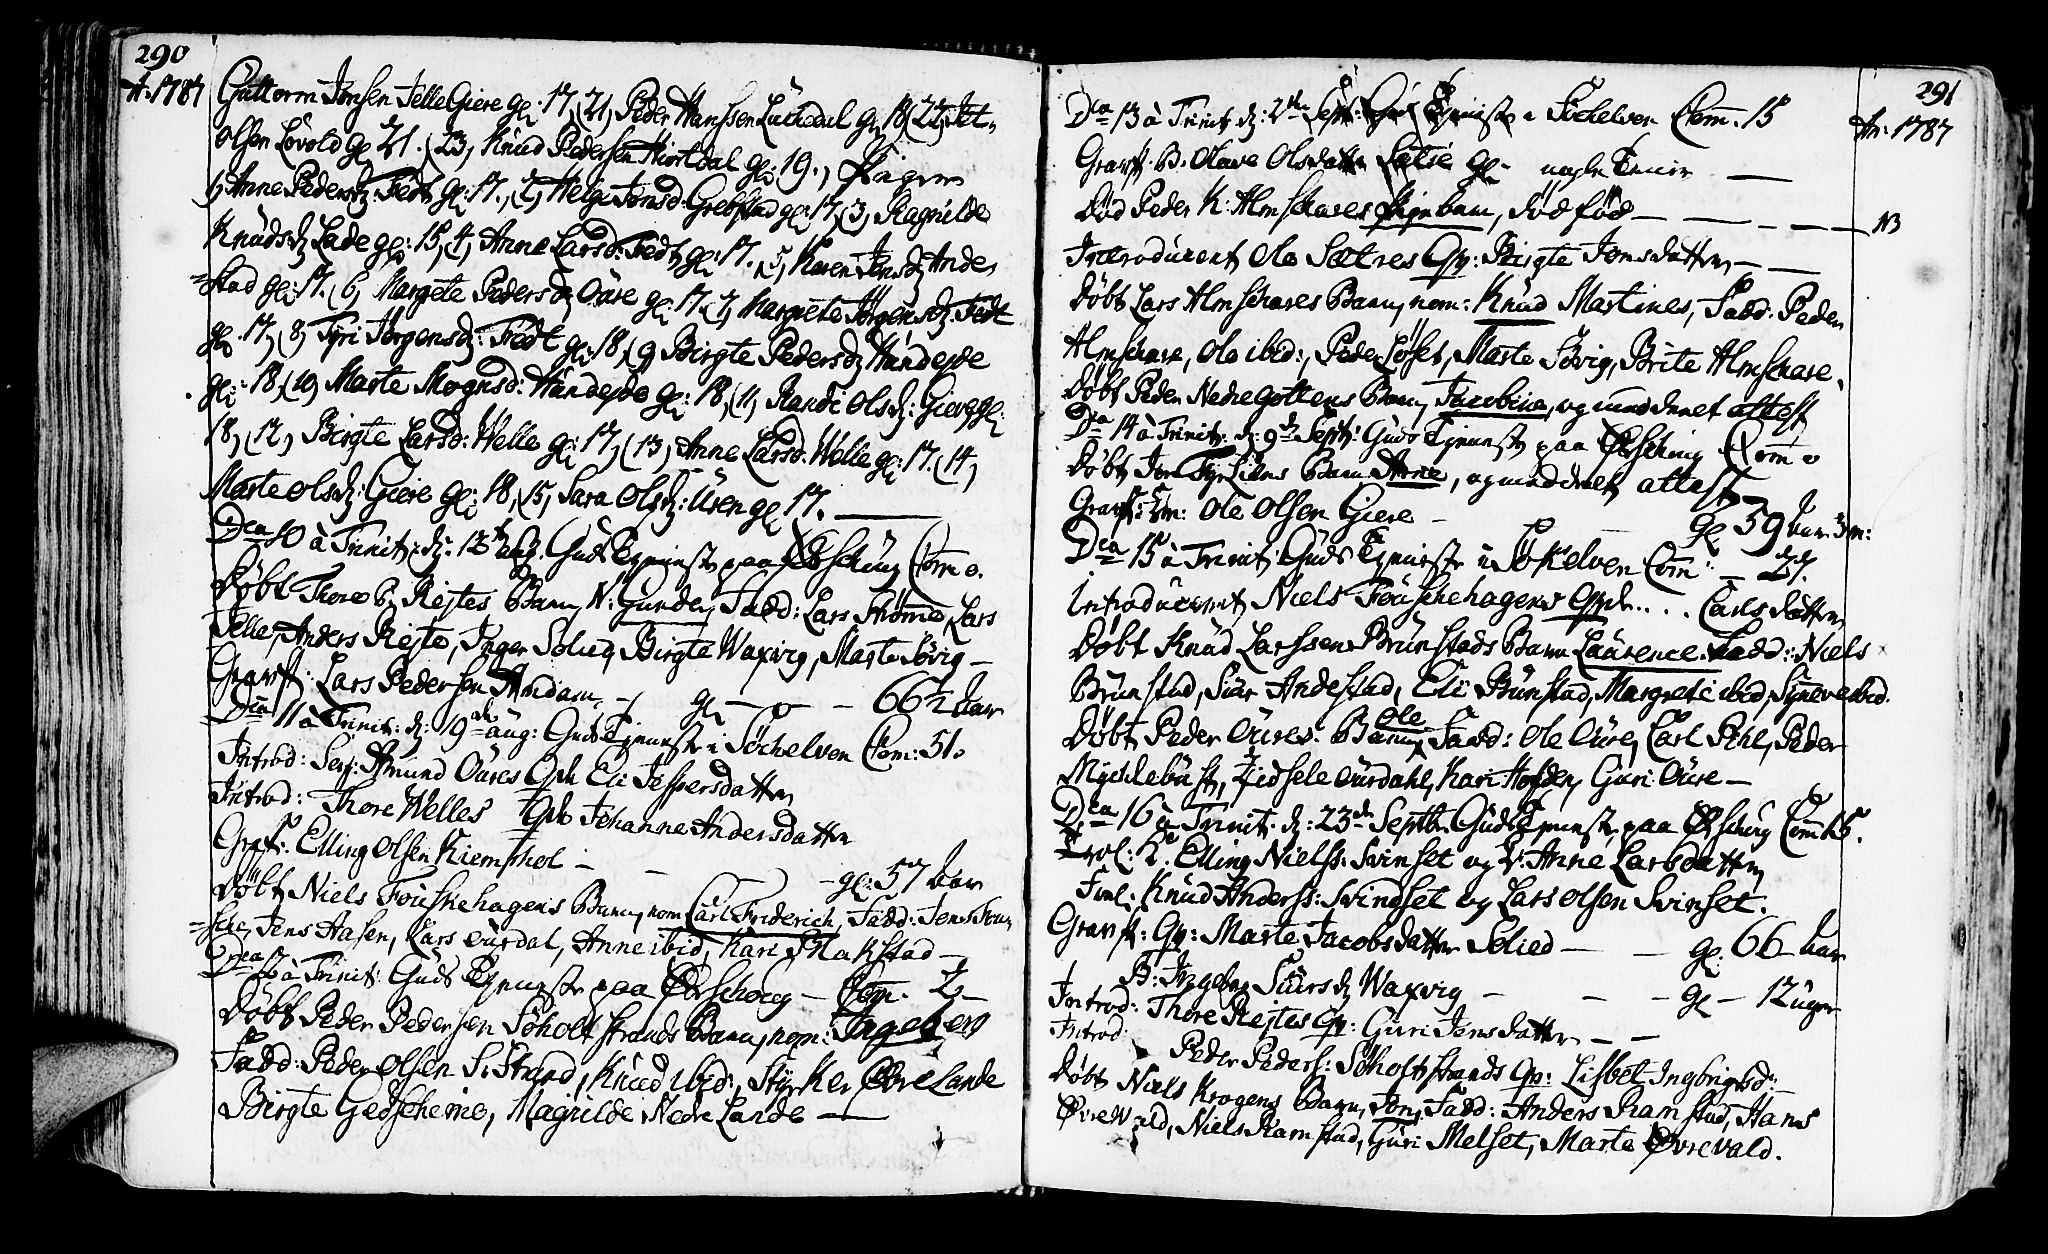 290
A: 1787
Guttorm Jonsen Jelle Giere gl: 17, (21, Peder Hanssen Luthdal gl: 18 (22,
Olsen Løvold gl: 21. (23, Knud Pedersen Hiortdal gl: 19., Pigerne
1, Anne Pedersd: Tredt gl: 17., (2, Helge Jonsd: Grebstad gl: 17, (3, Ragnilde
Knudsd: Lade gl: 15, (4, Anne Larsd: Tredt gl: 17. (5, Karen Jensd: Andes
=stad gl: 17. (6, Margete Pedersd: Oure gl: 17. (7, Margrete Jørgensd: Tredt
gl: 17, (8, Tyri Jørgensd: Tredt gl: 18, (9 Birgte Pedersd: Handejde
gl: 18, (10, Marte Mognsd: Handejde gl: 18, (11, Randi Olsd: Giere gl:
18, (12, Birgte Larsd: Welle gl: 17, (13, Anne Larsd: Welle gl: 17. (14,
Marte Olsd: Giere gl: 18, (15, Sara Olsd: Ursen gl: 17.
Dca 10 à Trinit: d: 12te Aug. Guds Tjeneste paa Ørschoug Com o.
Døbt Thore Rejtes Barn, N: Gunder, Fadd: Lars Strømme, Lars
Jelle, Anders Rejte, Inger Solied, Birgte Waxvig, Marte Søvig —
Gravf: Lars Pedersen Amdam — gl — o — 66½ Aar
Dca 11 à Trinit: d: 19de aug: Guds Tjeneste i Søchelven Com: 51.
Introd: Serj: Amund Oures Qv: Eli Jespersdatter
Introd: Thore Welles Qv: Johanne Andersdatter
Gravf: Elling Olsen Kiemphol — — — gl: 57 Aar
Døbt Niels Fouskehagens Barn, nom Carl Friderich, Fadd: Jens Fou
=ske, Jens Aasen, Lars Aurdal, Anne ibid, Kari Slakstad —
Dca 12 à Trinit: Guds Tjeneste paa Ørschoug — Com. 2 —
Døbt Peder Pedersen Søholtstrands Barn, nom: Ingeberg
Fadd: Peder Olsen S. Strand, Knud ibid:, Styrker Øvre Lande
Birgte Gedscheime, Magnilde Nedre Lande —
291
An: 1787
Dca 13 à Trinit: d: 2den Sept: Guds Tjeneste i Søchelven Com. 15
Gravf: B: Olave Olsdatter Sætre gl — nogle
Død Peder K: Almschares Pigebarn, død fød — — — NB
Introduceret Ole Sætres Qv: Birgte Jonsdatter — —
Døbt Lars Almschares Barn, nom: Knud Martines, Fadd: Peder
Almschare, Ole ibid:, Peder Løset, Marte Søvig, Brite Almschare.
Døbt Peder Nedregottens Barn, Jacobine, og meddeelet attest
Dca 14 à Trinit: d: 9de Sept: Guds Tjeneste paa Ørschoug Com o
Døbt Jon Barn Arne, og meddeelet attest —
Gravf: Em: Ole Olsen Giere — — gl 39 Aar 3 m:
Dca 15 à Trinit: Guds Tjeneste i Søkelven Com: — 27.
Introduceret Niels Fouschehagens Qv: .... Carlsdatter
Døbt Knud Larssen Brunstads Barn Laurence. Fadd: Niels
Brunstad, Siur Andestad, Eli Brunstad, Margrete ibid, Synneve ibid.
Døbt Peder Oures Barn, Ole Fadd: Ole Oure, Carl Pihl, Peder
Mycklebust, Zidsele Aurdahl, Kari Hofden, Guri Oure —
Dca 16 à Trinit: d: 23de Septbr Guds Tjeneste paa Ørschoug Com 15.
Trol: K: Elling Nielss: Svinset og P: Anne Larsdatter
Forl: Knud Anderss: Svindset og Lars Olsen Svinset.
Gravf: Qv: Marte Jacobsdatter Solied — — gl: 66 Aar
B: Ingeborg Siursd: Waxvig — — — gl — 12 uger
Introd: Thore Rejtes Qv: Guri Jensdatter — —
Introd: Peder Peders: Søholtstrands Qv: Lisbet Ingbrigtsd: —
Døbt Niels Krogens Barn, Jon, Fadd: Anders Ramstad, Hans
Øvrevald, Niels Ramstad, Guri Melset, Marte Øvrevald.